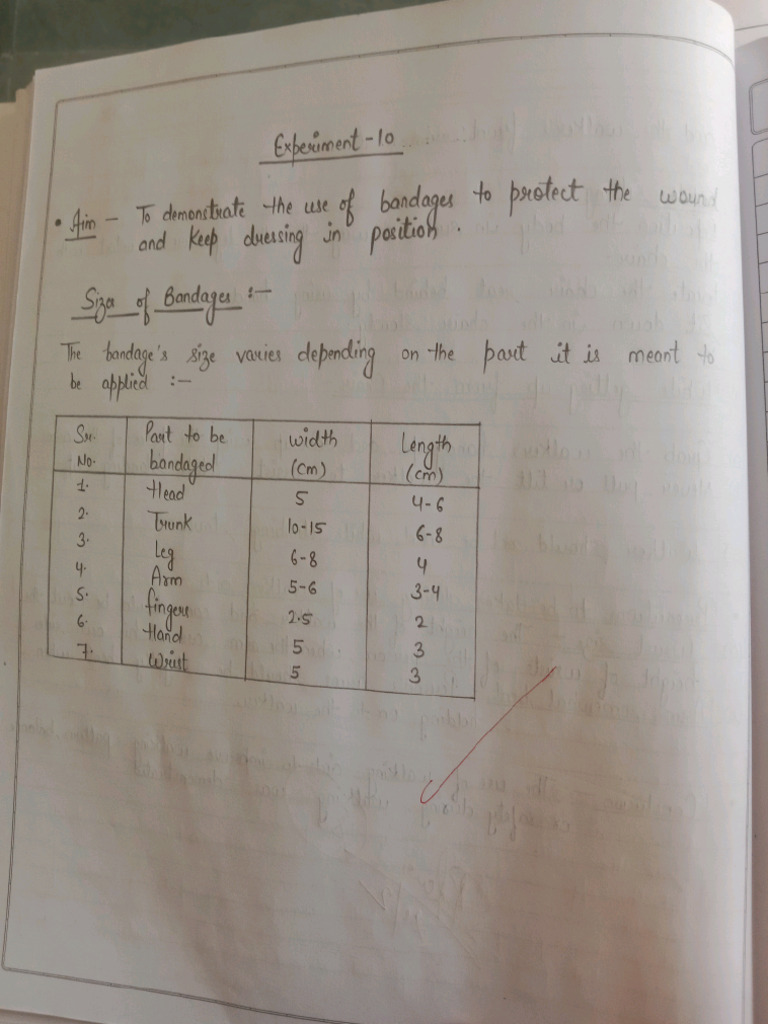 Experiment - 10
• Aim - To demonstrate the use of bandages to protect the wound
and keep dressing in position.
Size of Bandages :-
The bandage's size varies depending on the part it is meant to
be applied :-
Sr. No. | Part to be bandaged | width (cm) | Length (cm)
1. | Head | 5 | 4-6
2. | Trunk | 10-15 | 6-8
3. | Leg | 6-8 | 4
4. | Arm | 5-6 | 3-4
5. | fingers | 2.5 | 2
6. | Hand | 5 | 3
7. | Wrist | 5 | 3